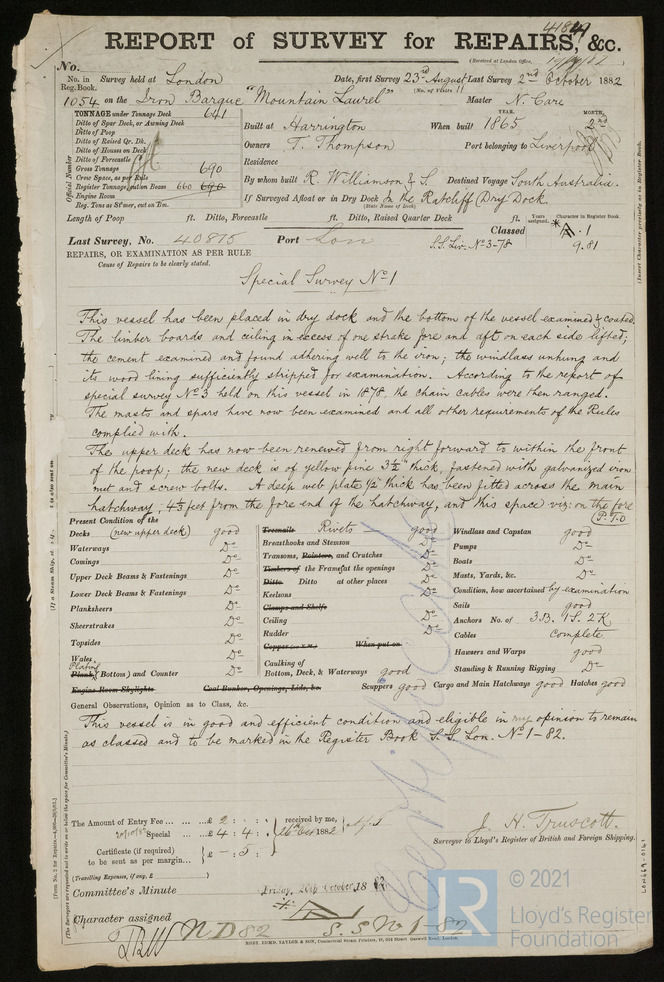 41849
REPORT of SURVEY for REPAIRS, &c.
(Received at London Office,
No.
No. in Reg. Book. Survey held at London Date, first Survey 23rd August Last Survey 2nd October 1882
(No. of Visits 11)
1054 on the Iron Barque "Mountain Laurel" Master N. Care
TONNAGE under Tonnage Deck 641
Ditto of Spar Deck, or Awning Deck
Ditto of Poop
Ditto of Raised Qr. Dk.
Ditto of Houses on Deck
Ditto of Forecastle
Gross Tonnage 690
Crew Space, as per Rule
Register Tonnage, cut on Beam 660 690
Engine Room
Reg. Tons as St'mer, cut on Bm.
Official Number
YEAR. MONTH.
Built at Harrington When built 1865
Owners T. Thompson Port belonging to Liverpool
Residence
By whom built R. Williamson & S. Destined Voyage South Australia.
If Surveyed Afloat or in Dry Dock In the Ratcliff Dry Dock
(State Name of Dock)
Length of Poop ft. Ditto, Forecastle ft. Ditto, Raised Quarter Deck ft.
Years assigned. Character in Register Book.
Last Survey, No. 40875 Port Lon Classed A.1
S.S. Liv. No 3-78 9.81
REPAIRS, OR EXAMINATION AS PER RULE
Cause of Repairs to be clearly stated.
Special Survey No 1
This vessel has been placed in dry dock and the bottom of the vessel examined & coated.
The limber boards and ceiling in excess of one strake fore and aft on each side lifted;
the cement examined and found adhering well to the iron; the windlass unhung and
its wood lining sufficiently stripped for examination. According to the report of
special survey No 3 held on this vessel in 1878, the chain cables were then ranged.
The masts and spars have now been examined and all other requirements of the Rules
complied with.
The upper deck has now been renewed from right forward to within the front
of the poop; the new deck is of yellow pine 3½" thick, fastened with galvanized iron
nut and screw bolts. A deep web plate ½" thick has been fitted across the main
hatchway, 4½ feet from the fore end of the hatchway, and this space viz: on the fore
(P.T.O
Present Condition of the
Decks (new upper deck) good
Waterways Do
Comings Do
Upper Deck Beams & Fastenings Do
Lower Deck Beams & Fastenings Do
Planksheers Do
Sheerstrakes Do
Topsides Do
Wales Do
Plating
Plank (Bottom) and Counter Do
Engine Room Skylights
Treenails Rivets good
Breasthooks and Stemson Do
Transoms, Pointers, and Crutches Do
Timbers of the Frame at the openings Do
Ditto Ditto at other places Do
Keelsons Do
Clamps and Shelfs
Ceiling Do
Rudder Do
Copper When put on
Caulking of
Bottom, Deck, & Waterways good
Coal Bunker, Openings, Lids, &c.
Windlass and Capstan good
Pumps Do
Boats Do
Masts, Yards, &c. Do
Condition, how ascertained by examination
Sails good
Anchors No. of 3B. 1S. 2K
Cables Complete
Hawsers and Warps good
Standing & Running Rigging Do
Scuppers good Cargo and Main Hatchways good Hatches good
General Observations, Opinion as to Class, &c.
This vessel is in good and efficient condition and eligible in my opinion to remain
as classed and to be marked in the Register Book S.S. Lon. No 1-82.
Certificate
The Amount of Entry Fee ... £ 2 : :
Special ... £ 4 : 4 :
received by me,
26th Oct 1882
Certificate (if required) to be sent as per margin... £ - : 5 :
(Travelling Expenses, if any, £ )
J. H. Truscott.
Surveyor to Lloyd's Register of British and Foreign Shipping.
Committee's Minute Friday, 20th October, 1882
Character assigned A
ND 82 S.S No 1-82
LON669-0161
LR
© 2021
Lloyd's Register
Foundation